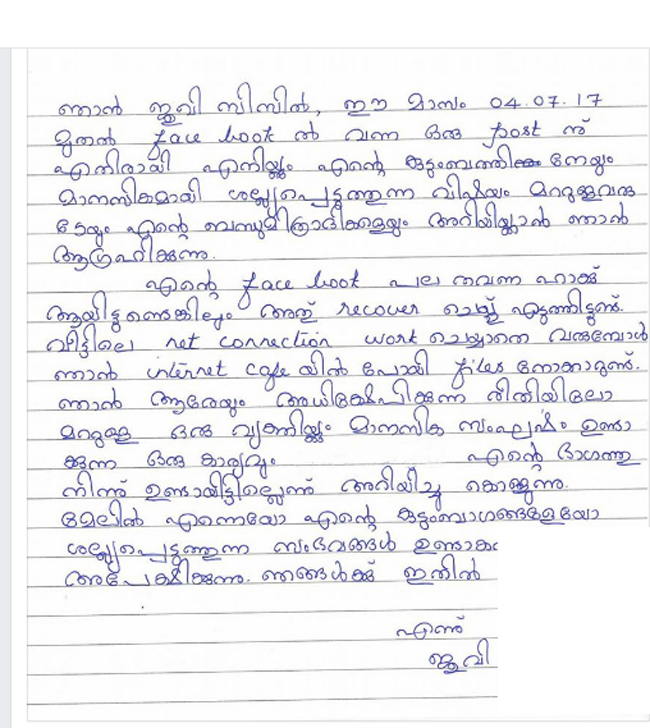 ഞാൻ ജൂവി സിസിൽ, ഈ മാസം 04.07.17
മുതൽ face book ൽ വന്ന ഒരു post ന്
എതിരായി എനിയ്ക്കും എന്റെ കുടുംബത്തിനേയും
മാനസികമായി ശല്യപ്പെടുത്തുന്ന വിഷയം മററുള്ളവരു
ടേയും എന്റെ ബന്ധുമിത്രാദികളെയും അറിയിയ്ക്കാൻ ഞാൻ
ആഗ്രഹിക്കുന്നു.
എന്റെ face book പല തവണ ഹാക്ക്
ആയിട്ടുണ്ടെങ്കിലും അത് recover ചെയ്ത് എടുത്തിട്ടുണ്ട്.
വീട്ടിലെ net connection work ചെയ്യാതെ വരുമ്പോൾ
ഞാൻ internet cafe യിൽ പോയി files നോക്കാറുണ്ട്.
ഞാൻ ആരേയും അധിക്ഷേപിക്കുന്ന രീതിയിലോ
മററുള്ള ഒരു വ്യക്തിയ്ക്കും മാനസിക സംഘർഷം ഉണ്ടാ
ക്കുന്ന ഒരു കാര്യവും എന്റെ ഭാഗത്തു
നിന്ന് ഉണ്ടായിട്ടില്ലെന്ന് അറിയിച്ചു കൊള്ളുന്നു.
മേലിൽ എന്നെയോ എന്റെ കുടുംബാഗങ്ങളേയോ
ശല്യപ്പെടുത്തുന്ന സംഭവങ്ങൾ
അപേക്ഷിക്കുന്നു. ഞങ്ങൾക്ക് ഇതിൽ
എന്ന്
ജൂവി